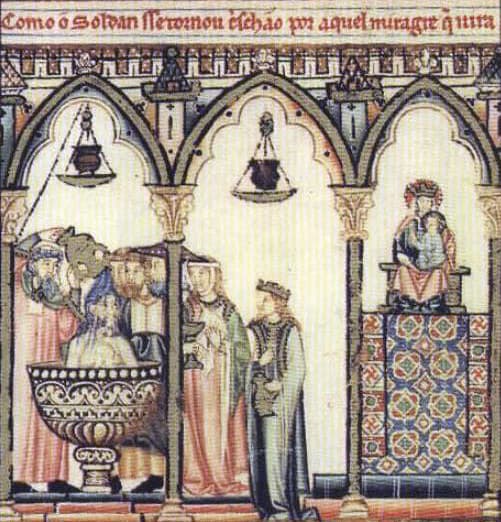 Como o Soldan sse tornou c̃schão por aquel miragre q̃ uira